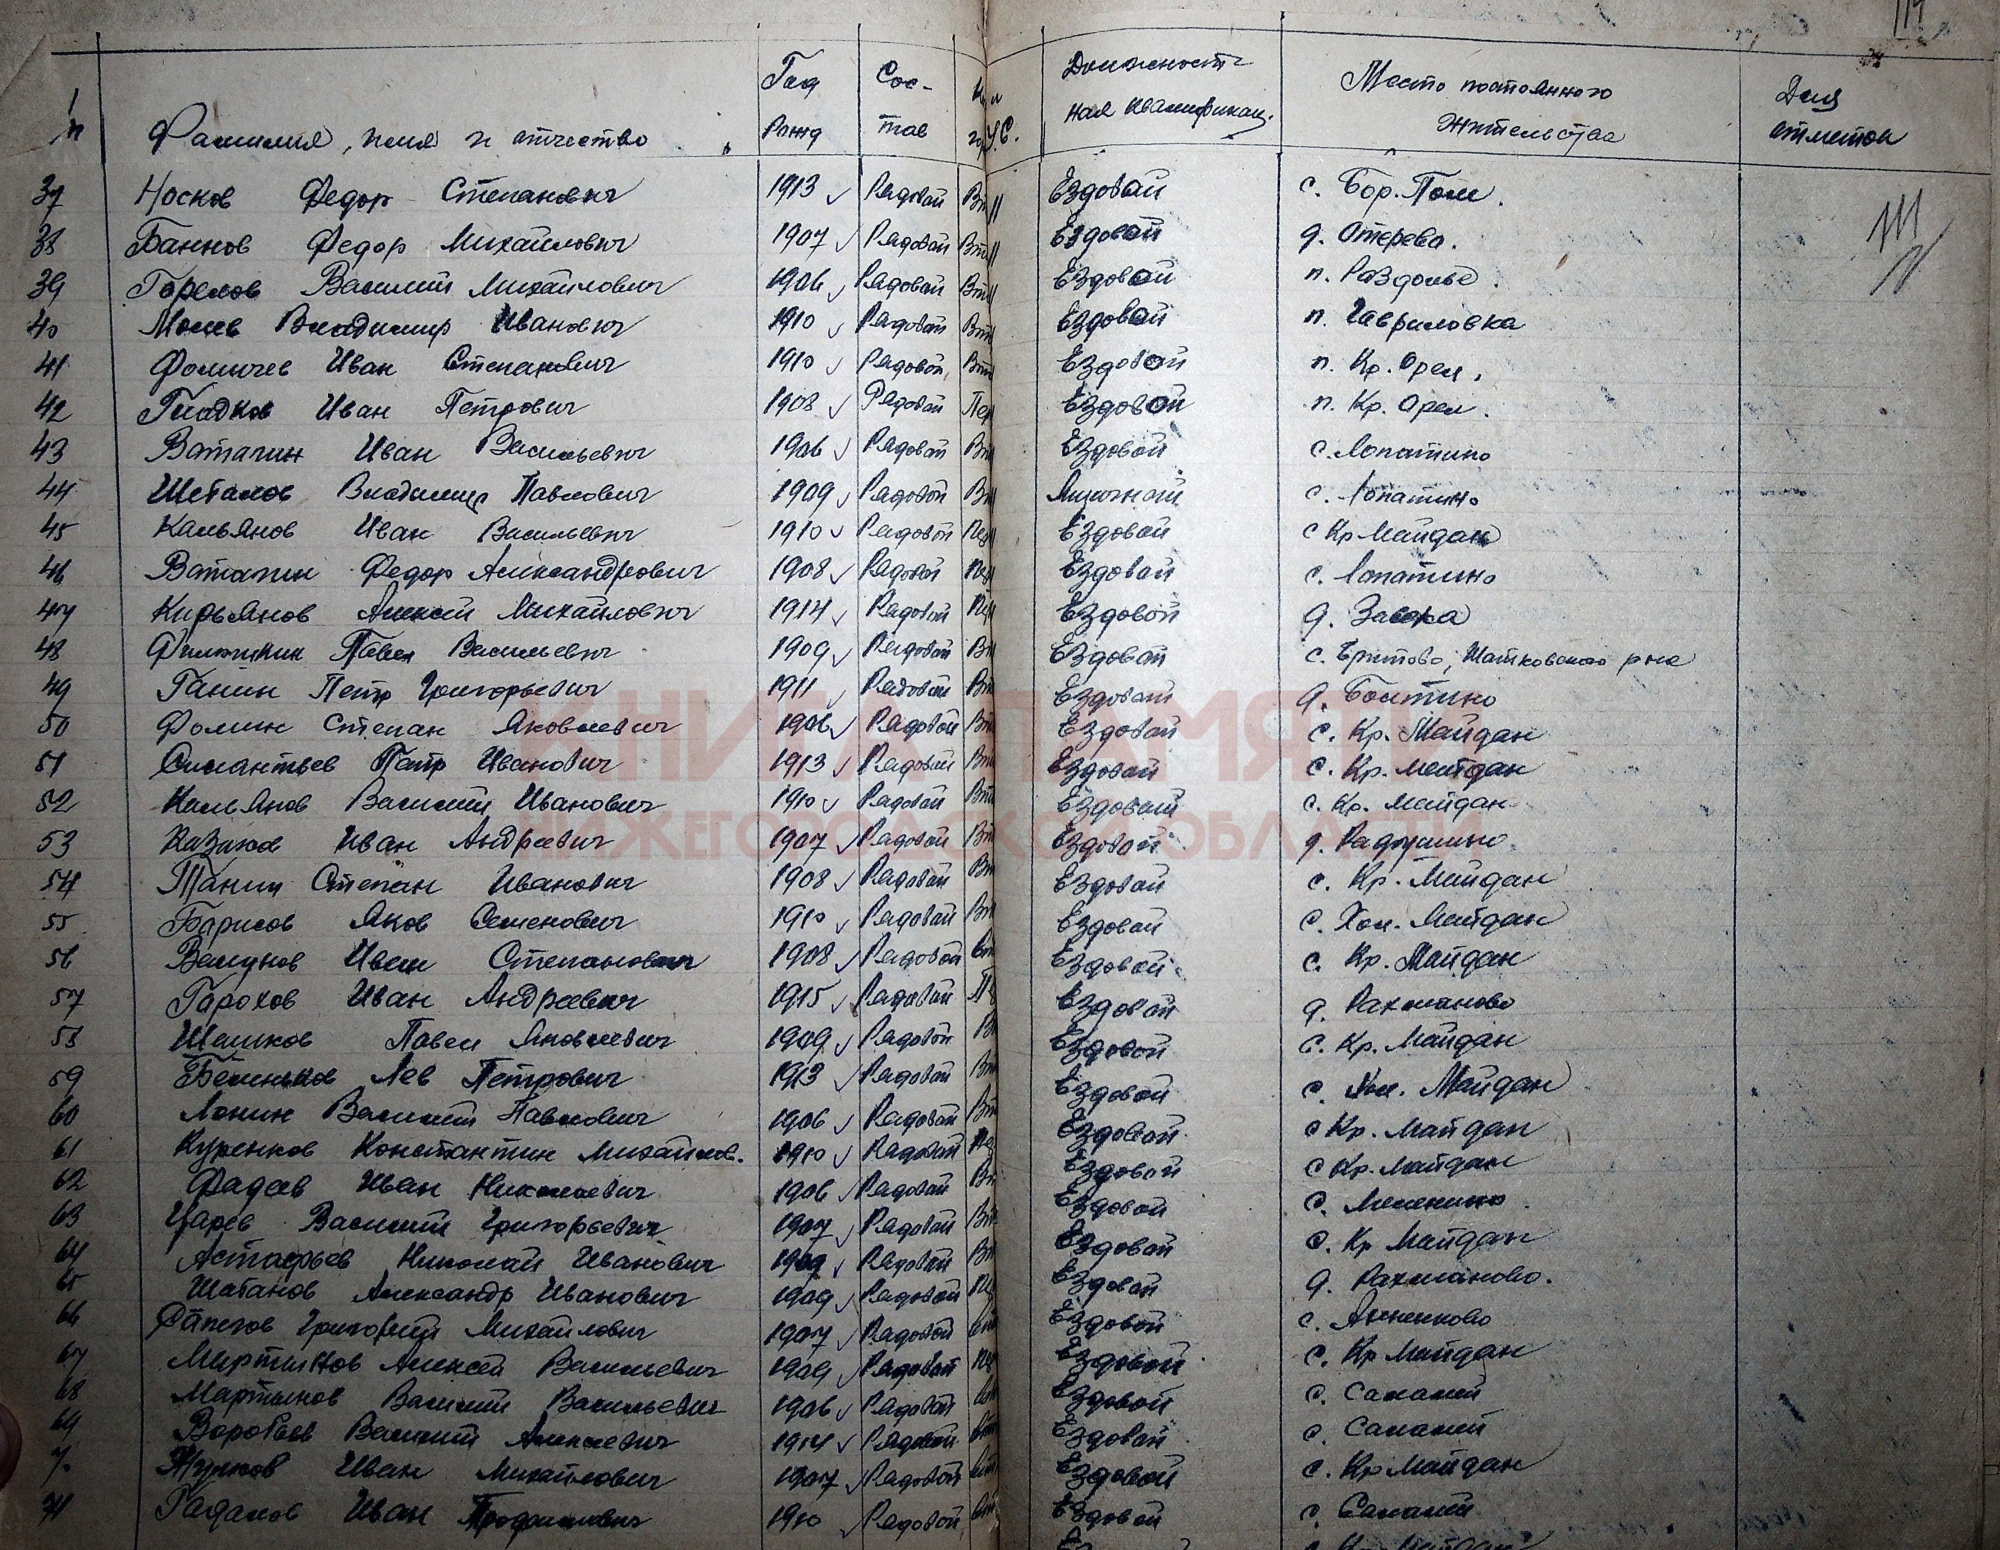 119
п/п Фамилия, имя и отчество Год рожд Сос-тав У.С. Должност-ная квалификац. Место постоянного жительства Для отметок
37 Носков Федор Степанович 1913 Рядовой Вт Ездовой с. Бор. Пол.
38 Баннов Федор Михайлович 1907 Рядовой Вт Ездовой д. Отерево.
39 Горелов Василий Михайлович 1906 Рядовой Вт Ездовой п. Раздолье.
40 Молев Владимир Иванович 1910 Рядовой Вт Ездовой п. Гавриловка
41 Фомичев Иван Степанович 1910 Рядовой Вт Ездовой п. Кр. Орел.
42 Гладков Иван Петрович 1908 Рядовой Пер Ездовой п. Кр. Орел.
43 Ватагин Иван Васильевич 1906 Рядовой Вт Ездовой с. Лопатино
44 Шеталов Владимир Павлович 1909 Рядовой Вт с. Лопатино
45 Кальянов Иван Васильевич 1910 Рядовой Пер Ездовой с Кр Майдан
46 Ватагин Федор Александрович 1908 Рядовой Пер Ездовой с. Лопатино
47 Кирьянов Алексей Михайлович 1914 Рядовой Пер Ездовой д.
48 Павел Васильевич 1909 Рядовой Вт Ездовой с. Шатковского р-на
49 Ганин Петр Григорьевич 1911 Рядовой Вт Ездовой д. Болтино
50 Фомин Степан Яковлевич 1906 Рядовой Вт Ездовой с. Кр. Майдан
51 Силантьев Петр Иванович 1913 Рядовой Вт Ездовой с. Кр. Майдан
52 Кальянов Василий Иванович 1910 Рядовой Вт Ездовой с. Кр. Майдан
53 Казаков Иван Андреевич 1907 Рядовой Вт Ездовой д.
54 Танин Степан Иванович 1908 Рядовой Вт Ездовой с. Кр. Майдан
55 Борисов Яков Семенович 1910 Рядовой Вт Ездовой с. Хол. Майдан
56 Валунов Иван Степанович 1908 Рядовой Вт Ездовой с. Кр. Майдан
57 Горохов Иван Андреевич 1915 Рядовой Пе Ездовой д. Рахманово
58 Шашков Павел Яковлевич 1909 Рядовой Вт Ездовой с. Кр. Майдан
59 Беленьков Лев Петрович 1913 Рядовой Вт Ездовой с. Хол. Майдан
60 Лонин Василий Павлович 1906 Рядовой Вт Ездовой с Кр. Майдан
61 Куренков Константин Михайлов. 1910 Рядовой Пе Ездовой с Кр. Майдан
62 Фадеев Иван Николаевич 1906 Рядовой Вт Ездовой с.
63 Царев Василий Григорьевич 1907 Рядовой Вт Ездовой с. Кр Майдан
64 Астафьев Николай Иванович 1909 Рядовой Вт Ездовой д. Рахманово.
65 Шабанов Александр Иванович 1909 Рядовой Пе Ездовой с. Анненково
66 Сапегов Григорий Михайлович 1907 Рядовой Ездовой с. Кр Майдан
67 Мартынов Алексей Васильевич 1909 Рядовой Пе Ездовой с. Саналей
68 Мартынов Василий Васильевич 1906 Рядовой Ездовой с. Саналей
69 Воробьев Василий Алексеевич 1914 Рядовой Ездовой с. Кр Майдан
70 Жулков Иван Михайлович 1907 Рядовой Ездовой с. Саналей
71 Гадалов Иван Трофимович 1910 Рядовой Ездовой Кр Майдан
КНИГА ПАМЯТИ
НИЖЕГОРОДСКОЙ ОБЛАСТИ